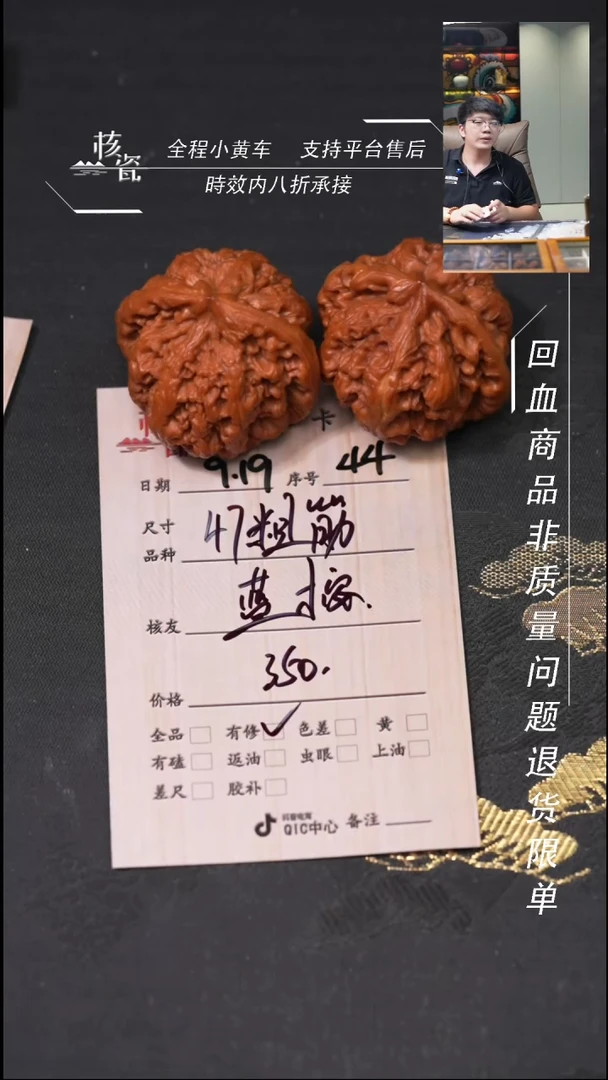 核瓷
全程小黄车 支持平台售后
時效内八折承接
回血商品非质量问题退货限单
卡
日期 9.19 序号 44
尺寸
品种 47粗筋
核友
350.
价格
全品 有修 ✓ 色差 黄
有磕 返油 虫眼 上油
差尺 胶补
抖音电商
QIC中心 备注